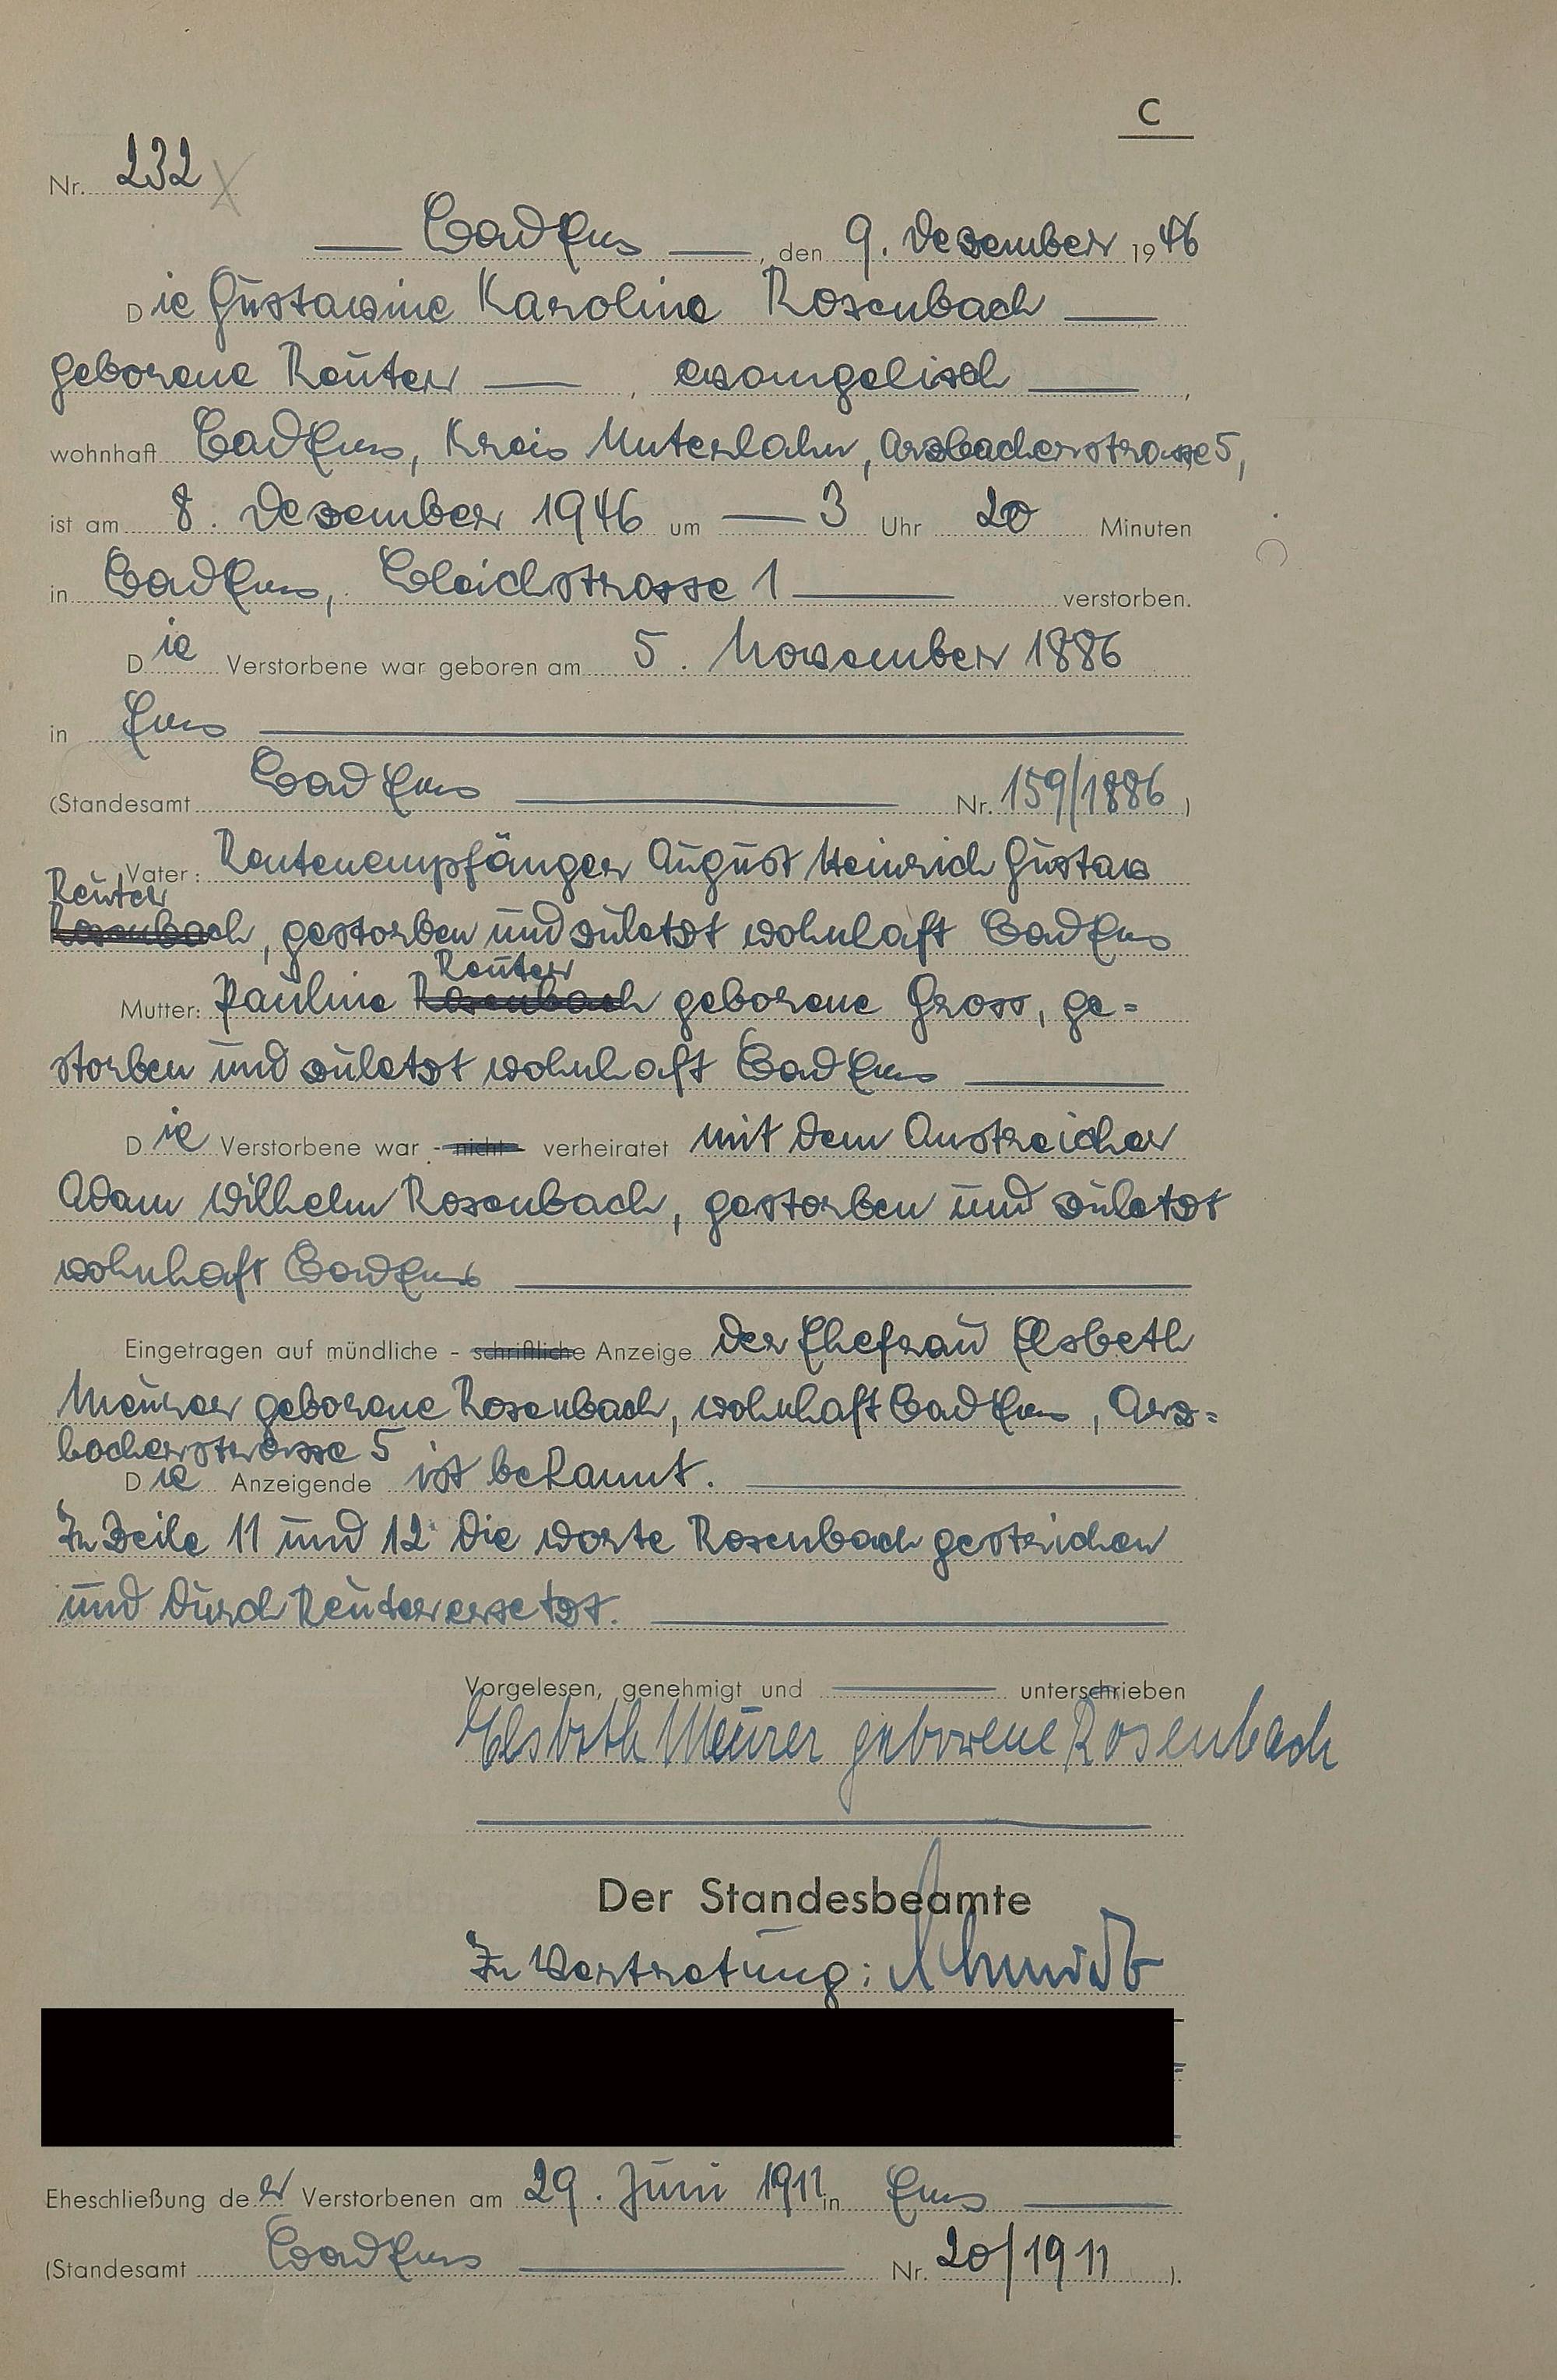 C
Nr. 232
Bad Ems, den 9. Dezember 1946
Die Gustawine Karoline Rosenbach
geborene Reuter, evangelisch,
wohnhaft Bad Ems, Kreis Unterlahn, Arzbacherstrasse 5,
ist am 8. Dezember 1946 um 3 Uhr 20 Minuten
in Bad Ems, Bleichstrasse 1 verstorben.
Die Verstorbene war geboren am 5. November 1886
in Ems
(Standesamt Bad Ems Nr. 159/1886)
Vater: Rentenempfänger August Heinrich Gustav
Reuter
Rosenbach, gestorben und zuletzt wohnhaft Bad Ems
Reuter
Mutter: Pauline Rosenbach geborene Gross, ge=
storben und zuletzt wohnhaft Bad Ems
Die Verstorbene war - nicht - verheiratet mit dem Anstreicher
Adam Wilhelm Rosenbach, gestorben und zuletzt
wohnhaft Bad Ems
Eingetragen auf mündliche - schriftliche Anzeige der Ehefrau Elsbeth
Meurer geborene Rosenbach, wohnhaft Bad Ems, Arz=
bacherstrasse 5
Die Anzeigende ist bekannt.
In Zeile 11 und 12 die Worte Rosenbach gestrichen
und durch Reuter ersetzt.
Vorgelesen, genehmigt und unterschrieben
Elsbeth Meurer geborene Rosenbach
Der Standesbeamte
In Vertretung: Schmidt
Eheschließung der Verstorbenen am 29. Juni 1911 in Ems
(Standesamt Bad Ems Nr. 20/1911).